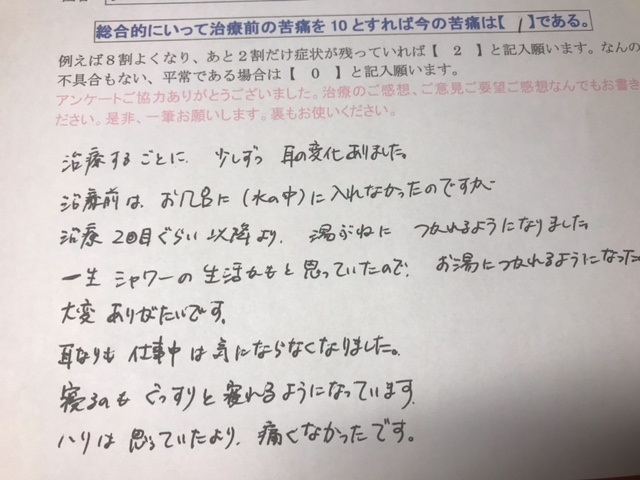 総合的にいって治療前の苦痛を10とすれば今の苦痛は【 1 】である。
例えば8割よくなり、あと2割だけ症状が残っていれば【 2 】と記入願います。なんの
不具合もない、平常である場合は【 0 】と記入願います。
アンケートご協力ありがとうございました。治療のご感想、ご意見ご要望ご感想なんでもお書き
ださい。是非、一筆お願いします。裏もお使いください。
治療するごとに、少しずつ 耳の変化ありました。
治療前は、お風呂に(水の中)に入れなかったのですが
治療 2回目ぐらい以降より、湯ぶねに つかれるようになりました
一生 シャワーの生活かもと思っていたので、お湯につかれるようになった
大変 ありがたいです。
耳なりも 仕事中は気にならなくなりました。
寝るのも ぐっすりと寝れるようになっています。
ハリは 思っていたより、痛くなかったです。